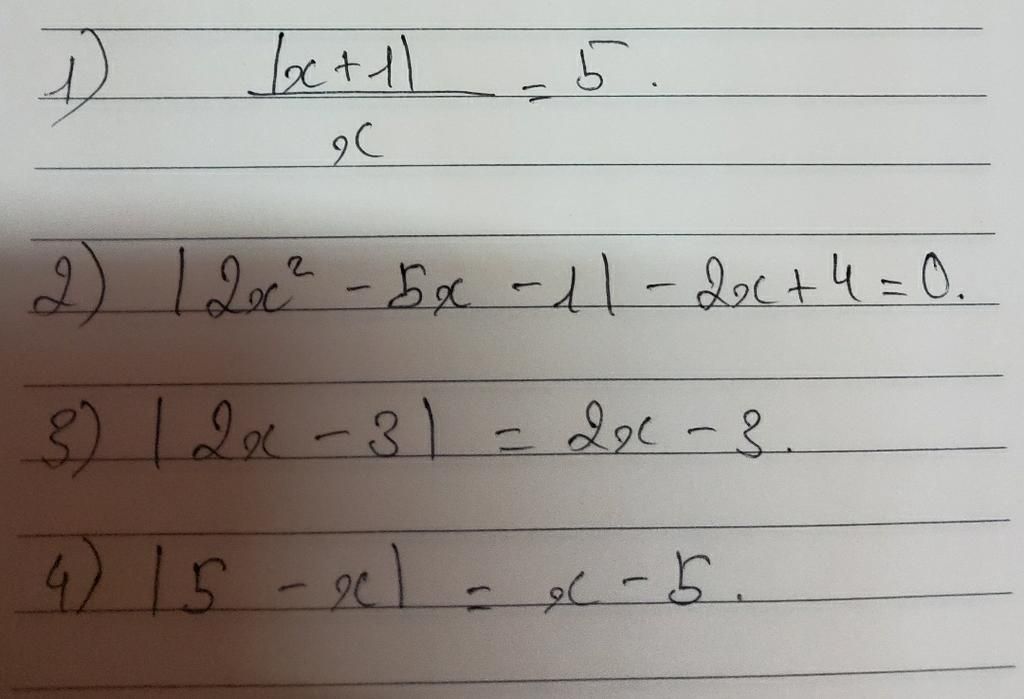 1) |x+1| / x = 5.
2) |2x² - 5x - 1| - 2x + 4 = 0.
3) |2x - 3| = 2x - 3.
4) |5 - x| = x - 5.